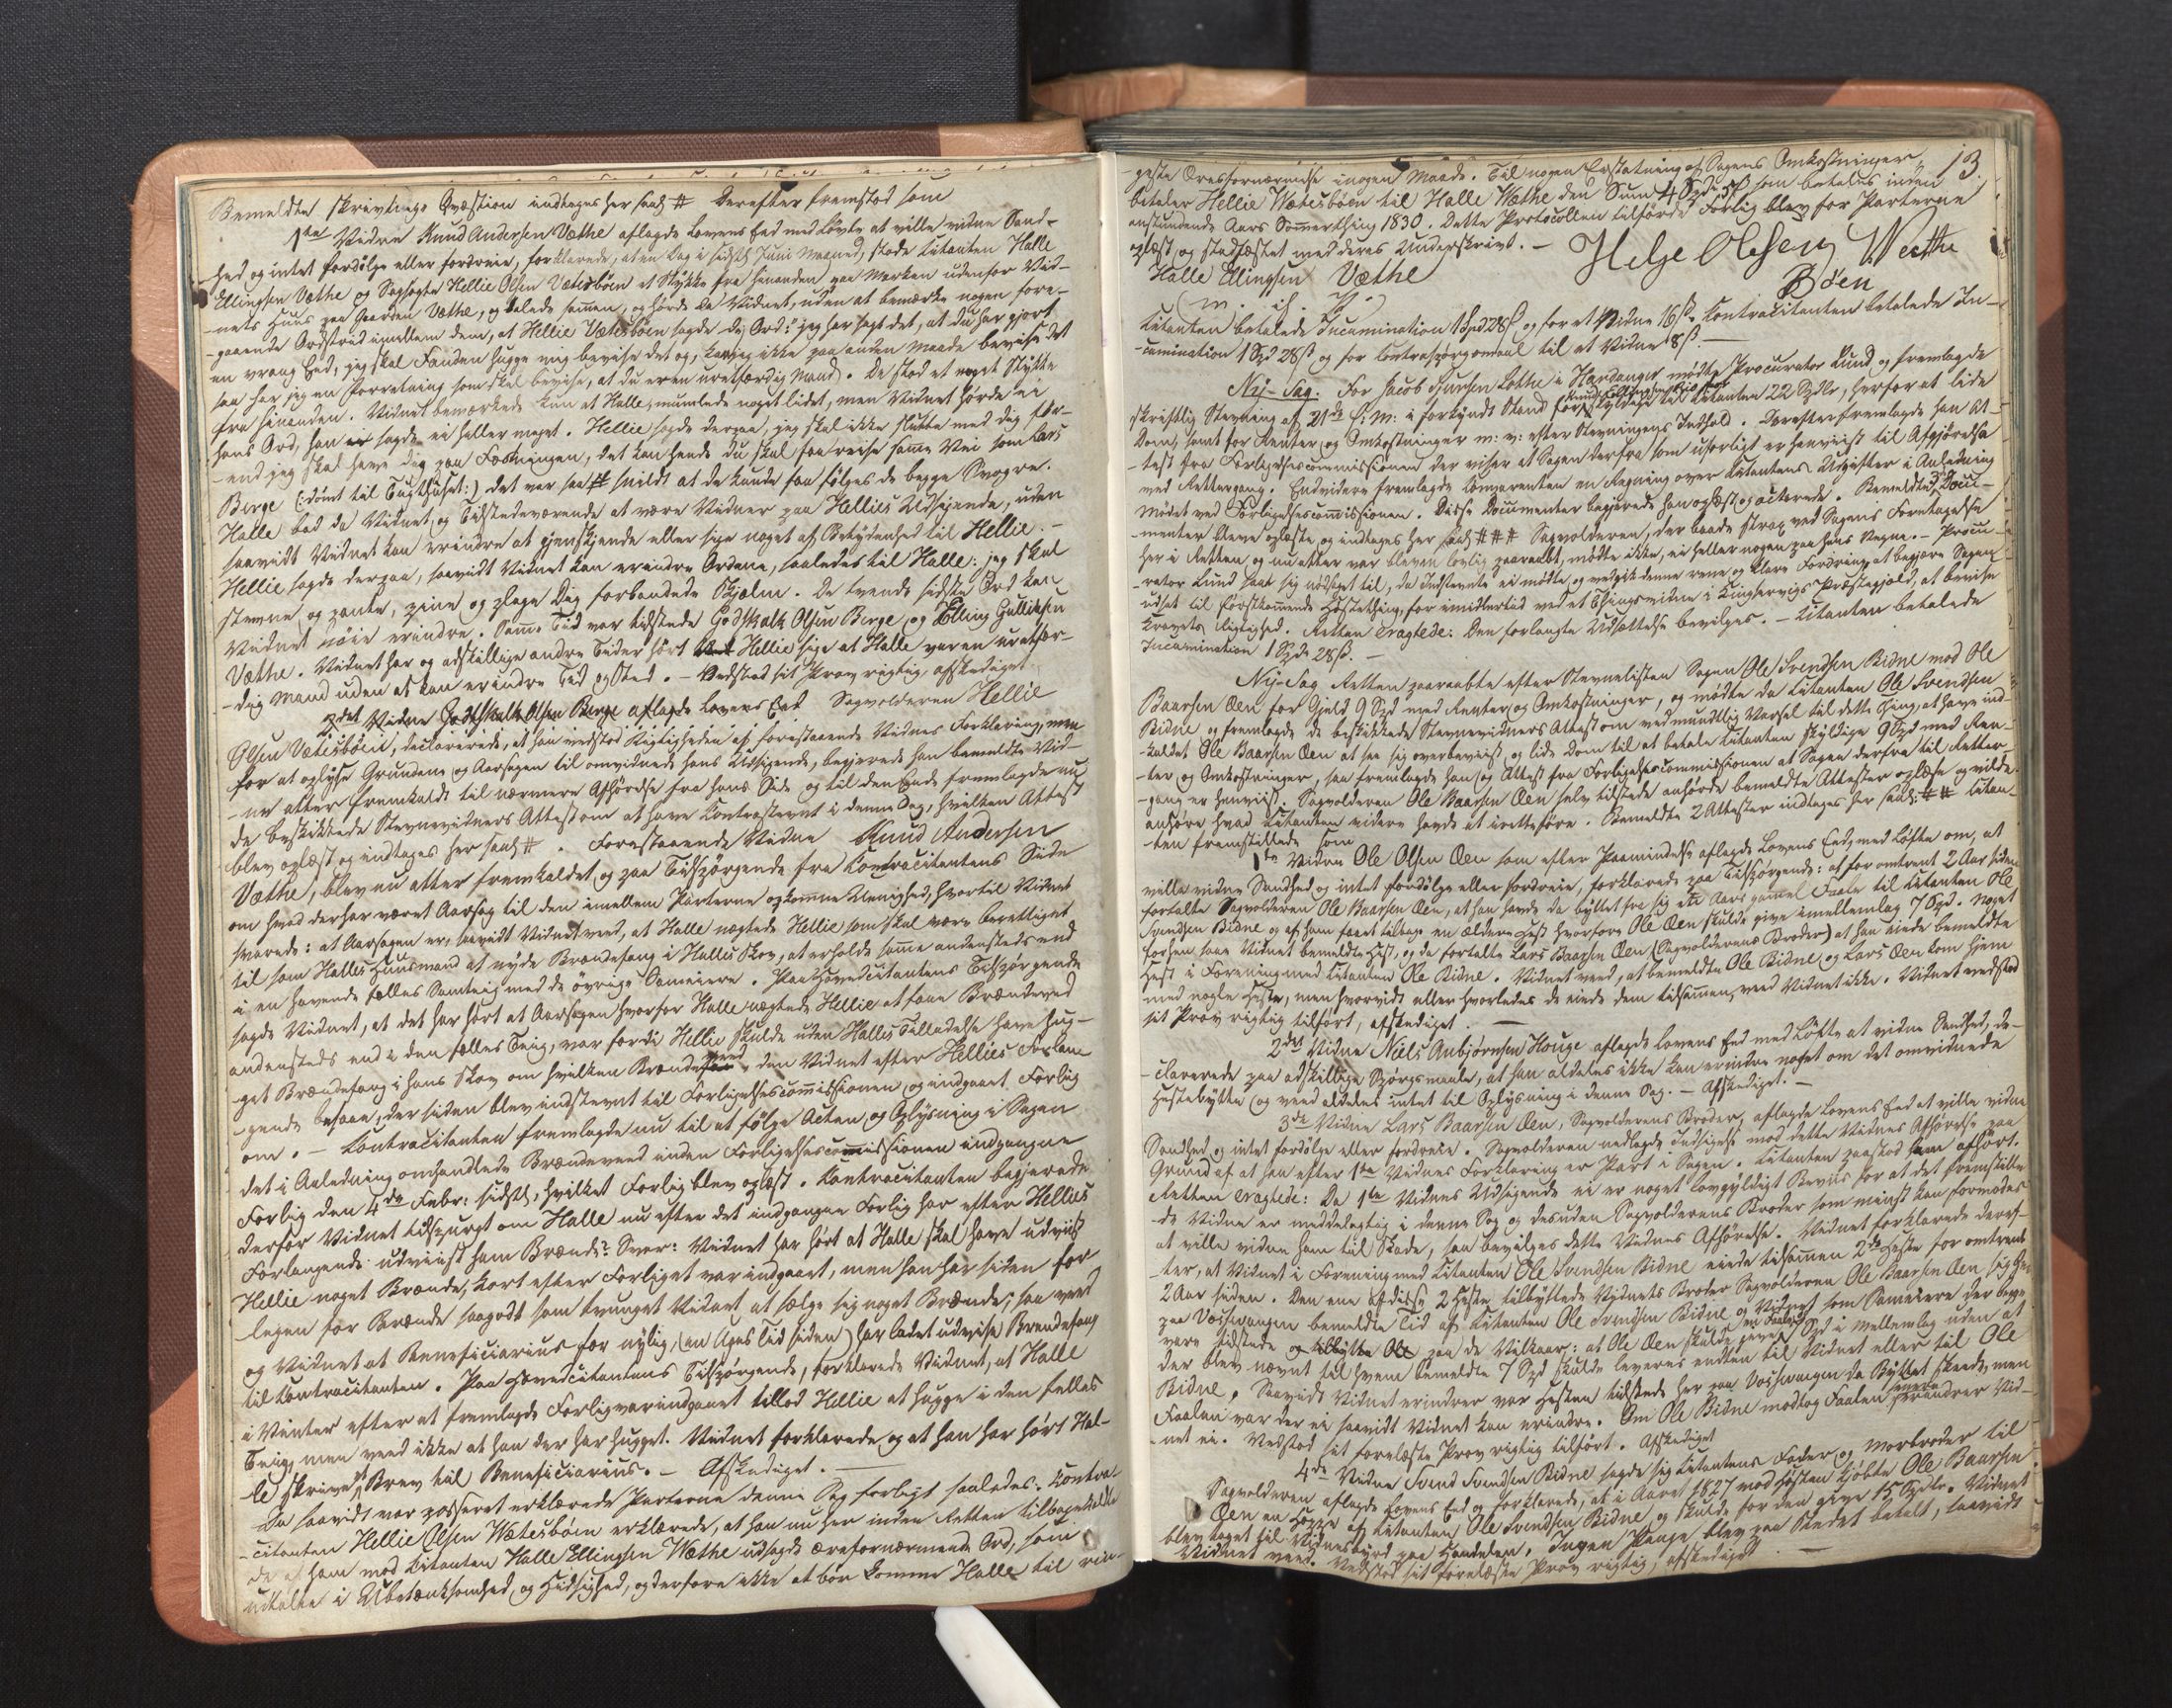 Bemeldte skrivtlige Qvæstion indtages her saal. # Derefter fremstod som
1ste Vidne Knud Andersen Væthe aflagde Lovens Eed med Løvte at ville vidne Sand-
-hed og intet fordølge eller fordreie, forklarede, at en Dag i sidstl. Juni Maaned, stode Citanten Halle
Ellingsen Væthe og Sagsøgte Hellie Olsen Vætesbøen et Stykke fra hinanden paa Marken udenfor Vid-
-nets Huus paa Gaarden Væthe, og talede sammen, og hørde da Vidnet, uden at bemærke nogen fore-
-gaaende Ordstrid imellem dem, at Hellie Vætesbøen sagde de Ord: "jeg har sagt det, at du har gjort
en vrang Eed, jeg skal Fanden hugge mig bevise det og, kan jeg ikke paa anden Maade bevise det
saa har jeg en Forretning som skal bevise, at du er en uretfærdig Mand. De stod et noget Stykke
fra hinanden. Vidnet bemærkede kun at Halle mumlede noget lidet, men Vidnet hørde ei
hans Ord, han sagde ei heller meget. Hellie sagde derpaa, jeg skal ikke slutte med dig før-
-end jeg skal have dig paa Fæstningen, det kan hende du skal faa reise samme Vei som Lars
Berge (:dømt til Tugthuset:) det var saa snildt at de kunde faa følges de begge Svogre.
Halle bad da Vidnet, og Tilstedeværende at være Vidner paa Hellies Udsigende, uden
saavidt Vidnet kan erindre at gjenskjende eller sige noget af Betydenhed til Hellie. -
Hellie sagde derpaa, saavidt Vidnet kan erindre Ordene, saaledes til Halle: jeg skal
stevne og pante, pine og plage dig forbandede Skjælm. De tvende sidste Ord kan
Vidnet nøie erindre. Samme Tid var tilstede Godskalk Olsen Berge og Elling Gulliksen
Væthe. Vidnet har og adskillige andre Tider hørt Hellie sige at Halle var en uretfær-
-dig Mand uden at kan erindre Tid og Sted. - Vedstod sit Prov rigtig afskediget.
2det Vidne Godskalk Olsen Berge aflagde Lovens Eed Sagvolderen Hellie
Olsen Vætesbøen, declarerede, at han vedstod Rigtigheden af forestaaende Vidnes Forklaring, men
for at oplyse Grunden og Aarsagen til omvidnede hans Udsigende, begjerede han bemeldte Vid-
-ne atter fremkaldt til nærmere Afhørelse fra hans Side og til den Ende fremlagde nu
de beskikkede Stevnevidners Attest om at have Contrastevnt i denne Sag, hvilken Attest
blev oplæst og indtages her saal. #. Forestaaende Vidne Knud Andersen
Væthe, blev nu atter fremkaldet og paa Tilspørgende fra Contracitantens Side
om hvad der har været Aarsag til den imellem Parterne opkomne Uenighed, hvortil Vidnet
svarede: at Aarsagen er, saavidt Vidnet veed, at Halle nægtede Hellie som skal være berettiget
til som Halles Huusmand at nyde Brændefang i Halles Skov, at erholde samme andensteds end
i en havende fælles Samteig med de øvrige Sameiere. Paa Hovedcitantens Tilspørgende
sagde Vidnet, at det har hørt at Aarsagen hvorfor Halle nægtede Hellie at faae Brændeved
andensteds end i den fælles Teig, var fordi Hellie skulde uden Halles Tilladelse have hug-
-get Brændefang i hans Skov om hvilken Brændeveed, den Vidnet efter Hellies Forlan-
-gende besaae, der siden blev indstevnt til Forligelsescommissionen, og indgaaet Forlig
om. - Contracitanten fremlagde nu til at følge Acten og Oplysning i Sagen
det i Anledning omhandlede Brændeveed inden Forligelsescommissionen indgangne
Forlig den 4de Febr: sidstl., hvilket Forlig blev oplæst. Kontracitanten begjerede
derfor Vidnet tilspurgt om Halle nu efter det indgangne Forlig har efter Hellies
Forlangende udviist ham Brænde? Svar: Vidnet har hørt at Halle skal have udviist
Hellie noget Brænde, kort efter Forliget var indgaaet, men han har siden for
-legen for Brænde saagodt som tvunget Vidnet at sælge sig noget Brænde, saa veed
og Vidnet at Beneficiarius for nylig (en Uges Tid siden) har ladet udvise Brændefang
til Contracitanten. Paa Hovedcitantens Tilspørgende, forklarede Vidnet, at Halle
i Vinter efter at fremlagde Forlig var indgaaet tillod Hellie at hugge i den fælles
Teig, men veed ikke at han der har hugget. Vidnet forklarede og at han har hørt Hal-
-le skrive et Brev til Beneficiarius. - Afskediget. -
Da saavidt var passeret erklærede Parterne denne Sag forligt saaledes: Contra-
-citanten Hellie Olsen Wætesbøen erklærede, at han nu her inden Retten tilbagekald-
-de af ham mod Citanten Halle Ellingsen Wæthe udsagde ærefornærmende Ord, som
udtalte i Ubetænksomhed, og Hidsighed, og derfore ikke at bør komme Halle til rin-
13.
-geste Æresfornærmelse ingen Maade. Til nogen Erstatning af Sagens Omkostninger,
betaler Hellie Wætesbøen til Halle Wæthe den Sum 4 Spd som betales inden
anstundende Aars Sommerthing 1830. Dette Protocollen tilførde Forlig blev for Parterne
oplæst og stadfæstet med deres Underskrivt. - Helge Olsen Weethe
Halle Ellingsen Væthe Bøen
(m. if. P.)
Citanten betalede Incamination 1 Spd 28 ß og for et Vidne 16 ß. Kontracitanten betalede In-
-camination 1 Spd 28 ß og for Contraspørgsmaal til et Vidne 8 ß. -
Nÿ-Sag: For Jacob Lothe i Hardanger mødte Procurator Lund og fremlagde
skriftlig Stevning af 21de f: M: i forkyndt Stand for skyldige til Citanten 22 Spdlr, herfor at lide
Dom, samt for Renter og Omkostninger m: v: efter Stevningens Indhold. Derefter fremlagde han At-
-test fra Forligelsescommissionen der viser at Sagen derfra som uforligt er henviist til Afgjørelse
ved Rettergang. Endvidere fremlagde Comparenten en Regning over Citantens Udgifter i Anledning
Mødet ved Forligelsescommissionen. Disse Documenter begjerede han oplæst og acterede. Bemeldte Docu-
-menter bleve oplæste og indtages her saal. # # # Sagvolderen, der baade strax ved Sagens Foretagelse
her i Retten og nu efter var bleven lovlig paaraabt, mødte ikke, ei heller nogen paa hans Vegne. - Procu-
-rator Lund saae sig nødsaget til, da Indstevnte ei mødte og vedgik denne rene og klare Fordring at begjære Sagen
udsat til førstkommende Høstething, for imidlertid ved et Thingsvidne i Kingservigs Præstegjeld, at bevise
Kravets Rigtighed. Retten Eragtede: Den forlangte Udsættelse bevilges. - Citanten betalede
Incamination 1 Spd 28 ß. -
Nÿ-Sag Retten paaraabte efter Stevnelisten Sagen Ole Svendsen Bidne mod Ole
Baarsen Øen for Gjeld 9 Spd med Renter og Omkostninger, og mødte da Citanten Ole Svendsen
Bidne og fremlagde de beskikkede Stevnevidners Attest om ved mundtlig Varsel til dette Thing, at have ind-
-kaldet Ole Baarsen Øen at see sig overbeviist og lide Dom til at betale Citanten skyldige 9 Spd med Ren-
-ter og Omkostninger, saa fremlagde han og Attest fra Forligelsescommissionen at Sagen derfra til Retter-
-gang er henviist. Sagvolderen Ole Baarsen Øen selv tilstede anhørde bemeldte Attester oplæse og vilde
anhøre hvad Citanten videre havde at iretteføre. Bemeldte 2 Attester indtages her saal: # # Citan-
-ten fremstillede som
1te Vidne Ole Olsen Øen som efter Paamindelse aflagde Lovens Eed, med Løfte om, at
ville vidne Sandhed og intet fordølge eller fordreie, forklarede paa Tilspørgende: at for omtrent 2 Aar siden
fortalte Sagvolderen Ole Baarsen Øen, at han havde da byttet fra sig et Aars gammel Faale til Citanten Ole
Svendsen Bidne og af ham faaet tilbage en ældere Hest hvorfore Ole Øen skulde give imellemlag 7 Spd. Noget
forhen saae Vidnet bemeldte Hest, og da fortalte Lars Baarsen Øen (Sagvolderens Broder) at han eiede bemeldte
Hest i Forening med Citanten Ole Bidne. Vidnet veed, at bemeldte Ole Bidne og Lars Øen kom hjem
med nogle Heste, men hvorvidt eller hvorledes de eiede dem tilsammen, veed Vidnet ikke. Vidnet vedstod
sit Prov rigtig tilført, afskediget. -
2det Vidne Niels Anbjørnsen Houge aflagde Lovens Eed med Løfte at vidne Sandhed, de-
-clarerede paa adskillige Spørgsmaale, at han aldeles ikke kan erindre noget om det omvidnede
Hestebytte og veed aldeles intet til Oplysning i denne Sag. - Afskediget. -
3de Vidne Lars Baarsen Øen, Sagvolderens Broder, aflagde Lovens Eed at ville vidne
Sandhed og intet fordølge eller fordreie. Sagvolderen nedlagde Indsigelse mod dette Vidnes Afhørelse paa
Grund af at han efter 1te Vidnes Forklaring er Part i Sagen. Citanten paastod ham afhørt.
Retten Eragtede: Da 1te Vidnes Udsigende ei er noget lovgyldigt Beviis for at det fremstille-
-de Vidne er meddelagtig i denne Sag og desuden Sagvolderens Broder som mindst kan formodes
at ville vidne ham til Skade, saa bevilges dette Vidnes Afhørelse. Vidnet forklarede deref-
-ter, at Vidnet i Forening med Citanten Ole Svendsen Bidne eiede tilsammen 2de Heste for omtrent
2 Aar siden. Den ene af disse 2 Heste tilbyttede Vidnets Broder Sagvolderen Ole Baarsen Øen sig her
paa Vossevangen bemeldte Tid af Citanten Ole Svendsen Bidne og Vidnet som Sameiere der begge
vare tilstede paa de Vilkaar: at Ole Øen skulde give 7 Spd i mellemlag uden at
der blev nævnt til hvem bemeldte 7 Spd skulde leveres endten til Vidnet eller til Ole
Bidne. Saavidt Vidnet erindrer var Hesten tilstede her paa Vossevangen da Byttet skeede, men
Faalen var der ei saavidt Vidnet kan erindre. Om Ole Bidne modtog Faalen erindrer Vid-
-net ei. Vedstod sit forelæste Prov rigtig tilført. Afskediget
4de Vidne Svend Svendsen Bidne sagde sig Citantens Fader og Morbroder til
Sagvolderen aflagde Lovens Eed og forklarede, at i Aaret 1827 mod Høsten kjøbte Ole Baarsen
Øen en Hoppe af Citanten Ole Svendsen Bidne og skulde for den give 15 Spdlr. Vidnet
blev taget til Vidnesbyrd paa Handelen. Ingen Penge blev paa Stedet betalt, saavidt
Vidnet veed. Vedstod sit forelæste Prov rigtig, afskediget -